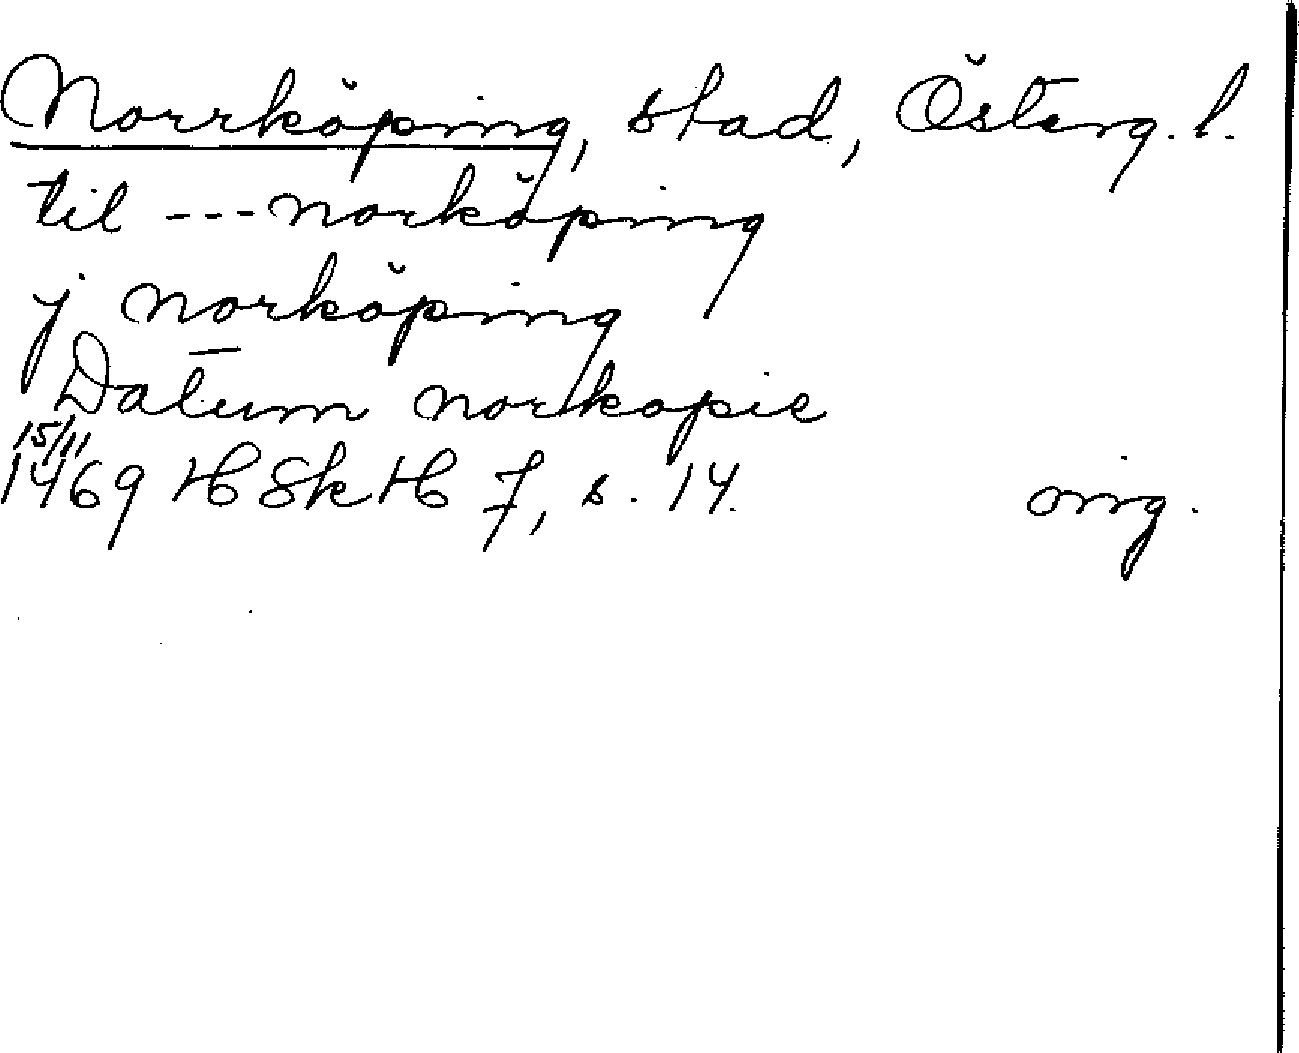 Norrköping, stad, Österg. l.
til --- norköping
j norköping
Datum norkopie
15/11
1469 HSkH 7, s. 14. orig.